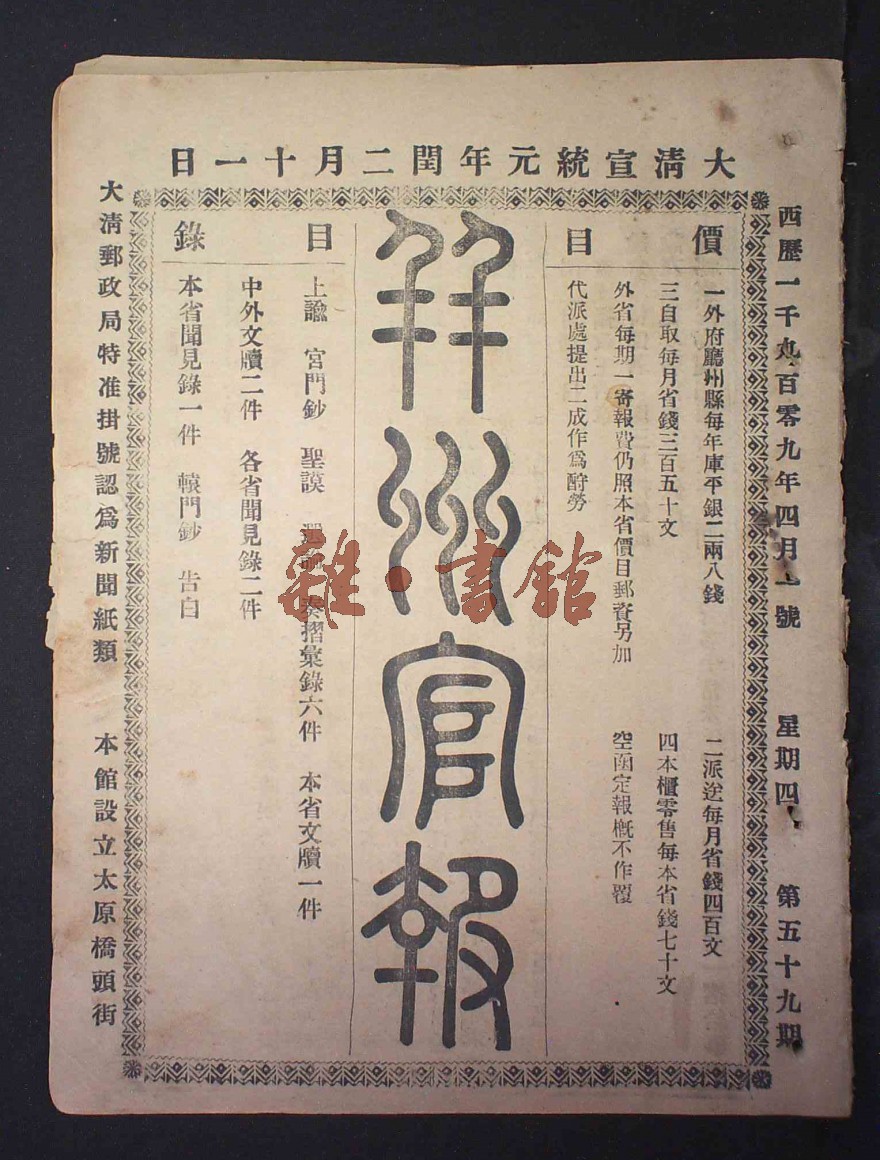 大清宣統元年閏二月十一日
西歷一千九百零九年四月一號 星期四 第五十九期
價目
一外府廳州縣每年庫平銀二兩八錢 二派送每月省錢四百文
三自取每月省錢三百五十文 四本櫃零售每本省錢七十文
外省每期一寄報費仍照本省價目郵資另加 空函定報概不作覆
代派處提出二成作爲酧勞
幷州官報
目錄
上諭 宮門鈔 聖謨 選 奏摺彙錄六件 本省文牘一件
中外文牘二件 各省聞見錄二件
本省聞見錄一件 轅門鈔 告白
大清郵政局特准掛號認爲新聞紙類 本館設立太原橋頭街
雜·書館